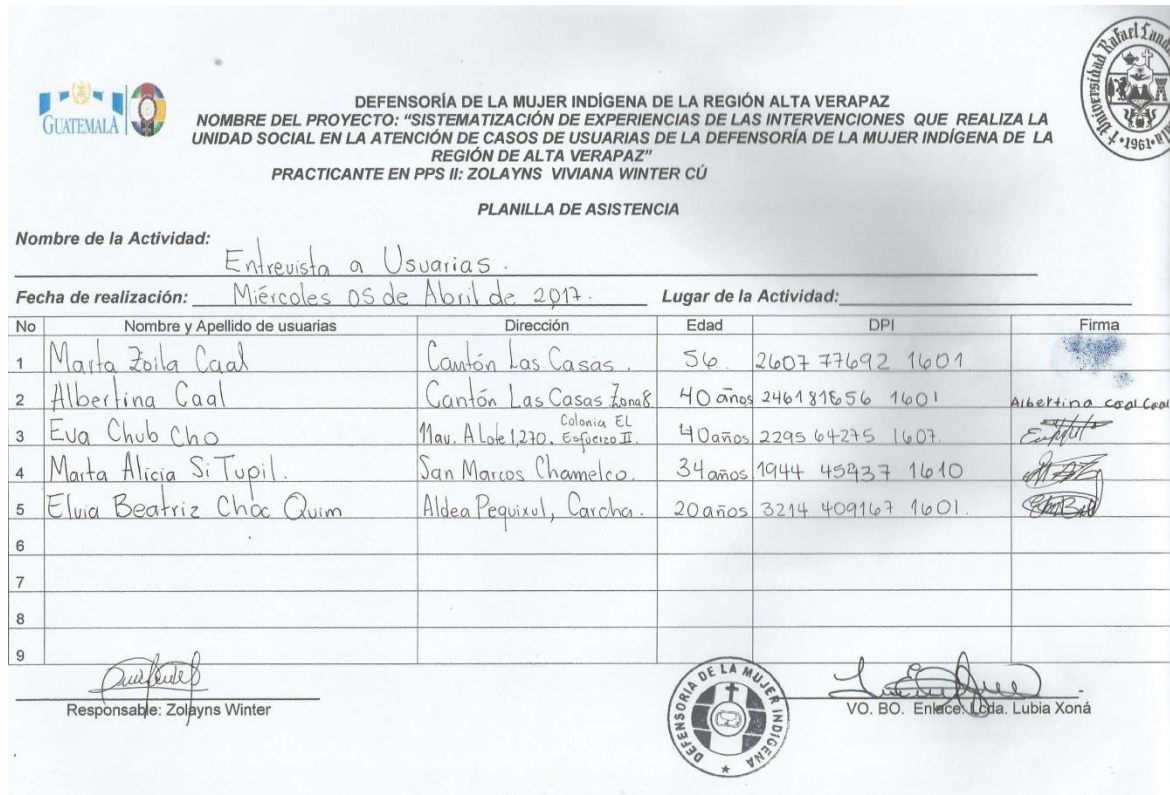 GUATEMALA
Universidad Rafael
1961
DEFENSORÍA DE LA MUJER INDÍGENA DE LA REGIÓN ALTA VERAPAZ
NOMBRE DEL PROYECTO: “SISTEMATIZACIÓN DE EXPERIENCIAS DE LAS INTERVENCIONES QUE REALIZA LA
UNIDAD SOCIAL EN LA ATENCIÓN DE CASOS DE USUARIAS DE LA DEFENSORÍA DE LA MUJER INDÍGENA DE LA
REGIÓN DE ALTA VERAPAZ”
PRACTICANTE EN PPS II: ZOLAYNS VIVIANA WINTER CÚ
PLANILLA DE ASISTENCIA
Nombre de la Actividad:
Entrevista a Usuarias.
Fecha de realización: Miércoles 05 de Abril de 2017. Lugar de la Actividad:
No Nombre y Apellido de usuarias Dirección Edad DPI Firma
1 Marta Zoila Caal Cantón Las Casas. 56 2607 77692 1601
2 Albertina Caal Cantón Las Casas Zona 8. 40 años 246181856 1601 Albertina Caal Caal
3 Eva Chub Cho 11av. A Lote 1,270. Colonia EL Esfuerzo II. 40 años 2295 64275 1607.
4 Marta Alicia Si Tupil. San Marcos Chamelco. 34 años 1944 45937 1610
5 Elvia Beatriz Choc Quim Aldea Pequixul, Carcha. 20 años 3214 409167 1601.
6
7
8
9
Responsable: Zolayns Winter
DEFENSORIA DE LA MUJER INDIGENA
VO. BO. Enlace: Lcda. Lubia Xoná